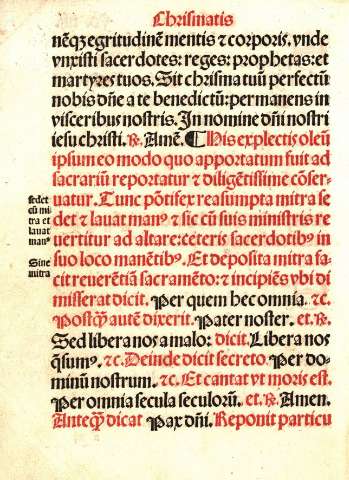 Chrismatis
nēqz egritudinē mentis ⁊ corporis. vnde
vnxisti sacerdotes: reges: prophetas: et
martyres tuos. Sit chrisma tuū perfectū
nobis dn̄e a te benedictū: permanens in
visceribus nostris. In nomine dn̄i nostri
iesu christi. ℟. Amē. ¶ His explectis oleū
ipsum eo modo quo apportatum fuit ad
sacrariū reportatur ⁊ diligētissime cōser-
uatur. Tunc pōtifex reasumpta mitra se
det ⁊ lauat manꝰ ⁊ sic cū suis ministris re
uertitur ad altare: ceteris sacerdotibꝰ in
suo loco manētibꝰ. Et deposita mitra fa
cit reuerētiā sacramēto: ⁊ incipiēs vbi di
misserat dicit. Per quem hec omnia. ⁊c.
Postꝙ̄ autē dixerit. Pater noster. et. ℟.
Sed libera nos a malo: dicit. Libera nos
q̄sumꝰ. ⁊c. Deinde dicit secreto. Per do-
minū nostrum. ⁊c. Et cantat vt moris est.
Per omnia secula seculorū. et. ℟. Amen.
Anteꝙ̄ dicat Pax dn̄i. Reponit particu
sedet
cū mi
tra et
lauat
manꝰ
Sine
mitra